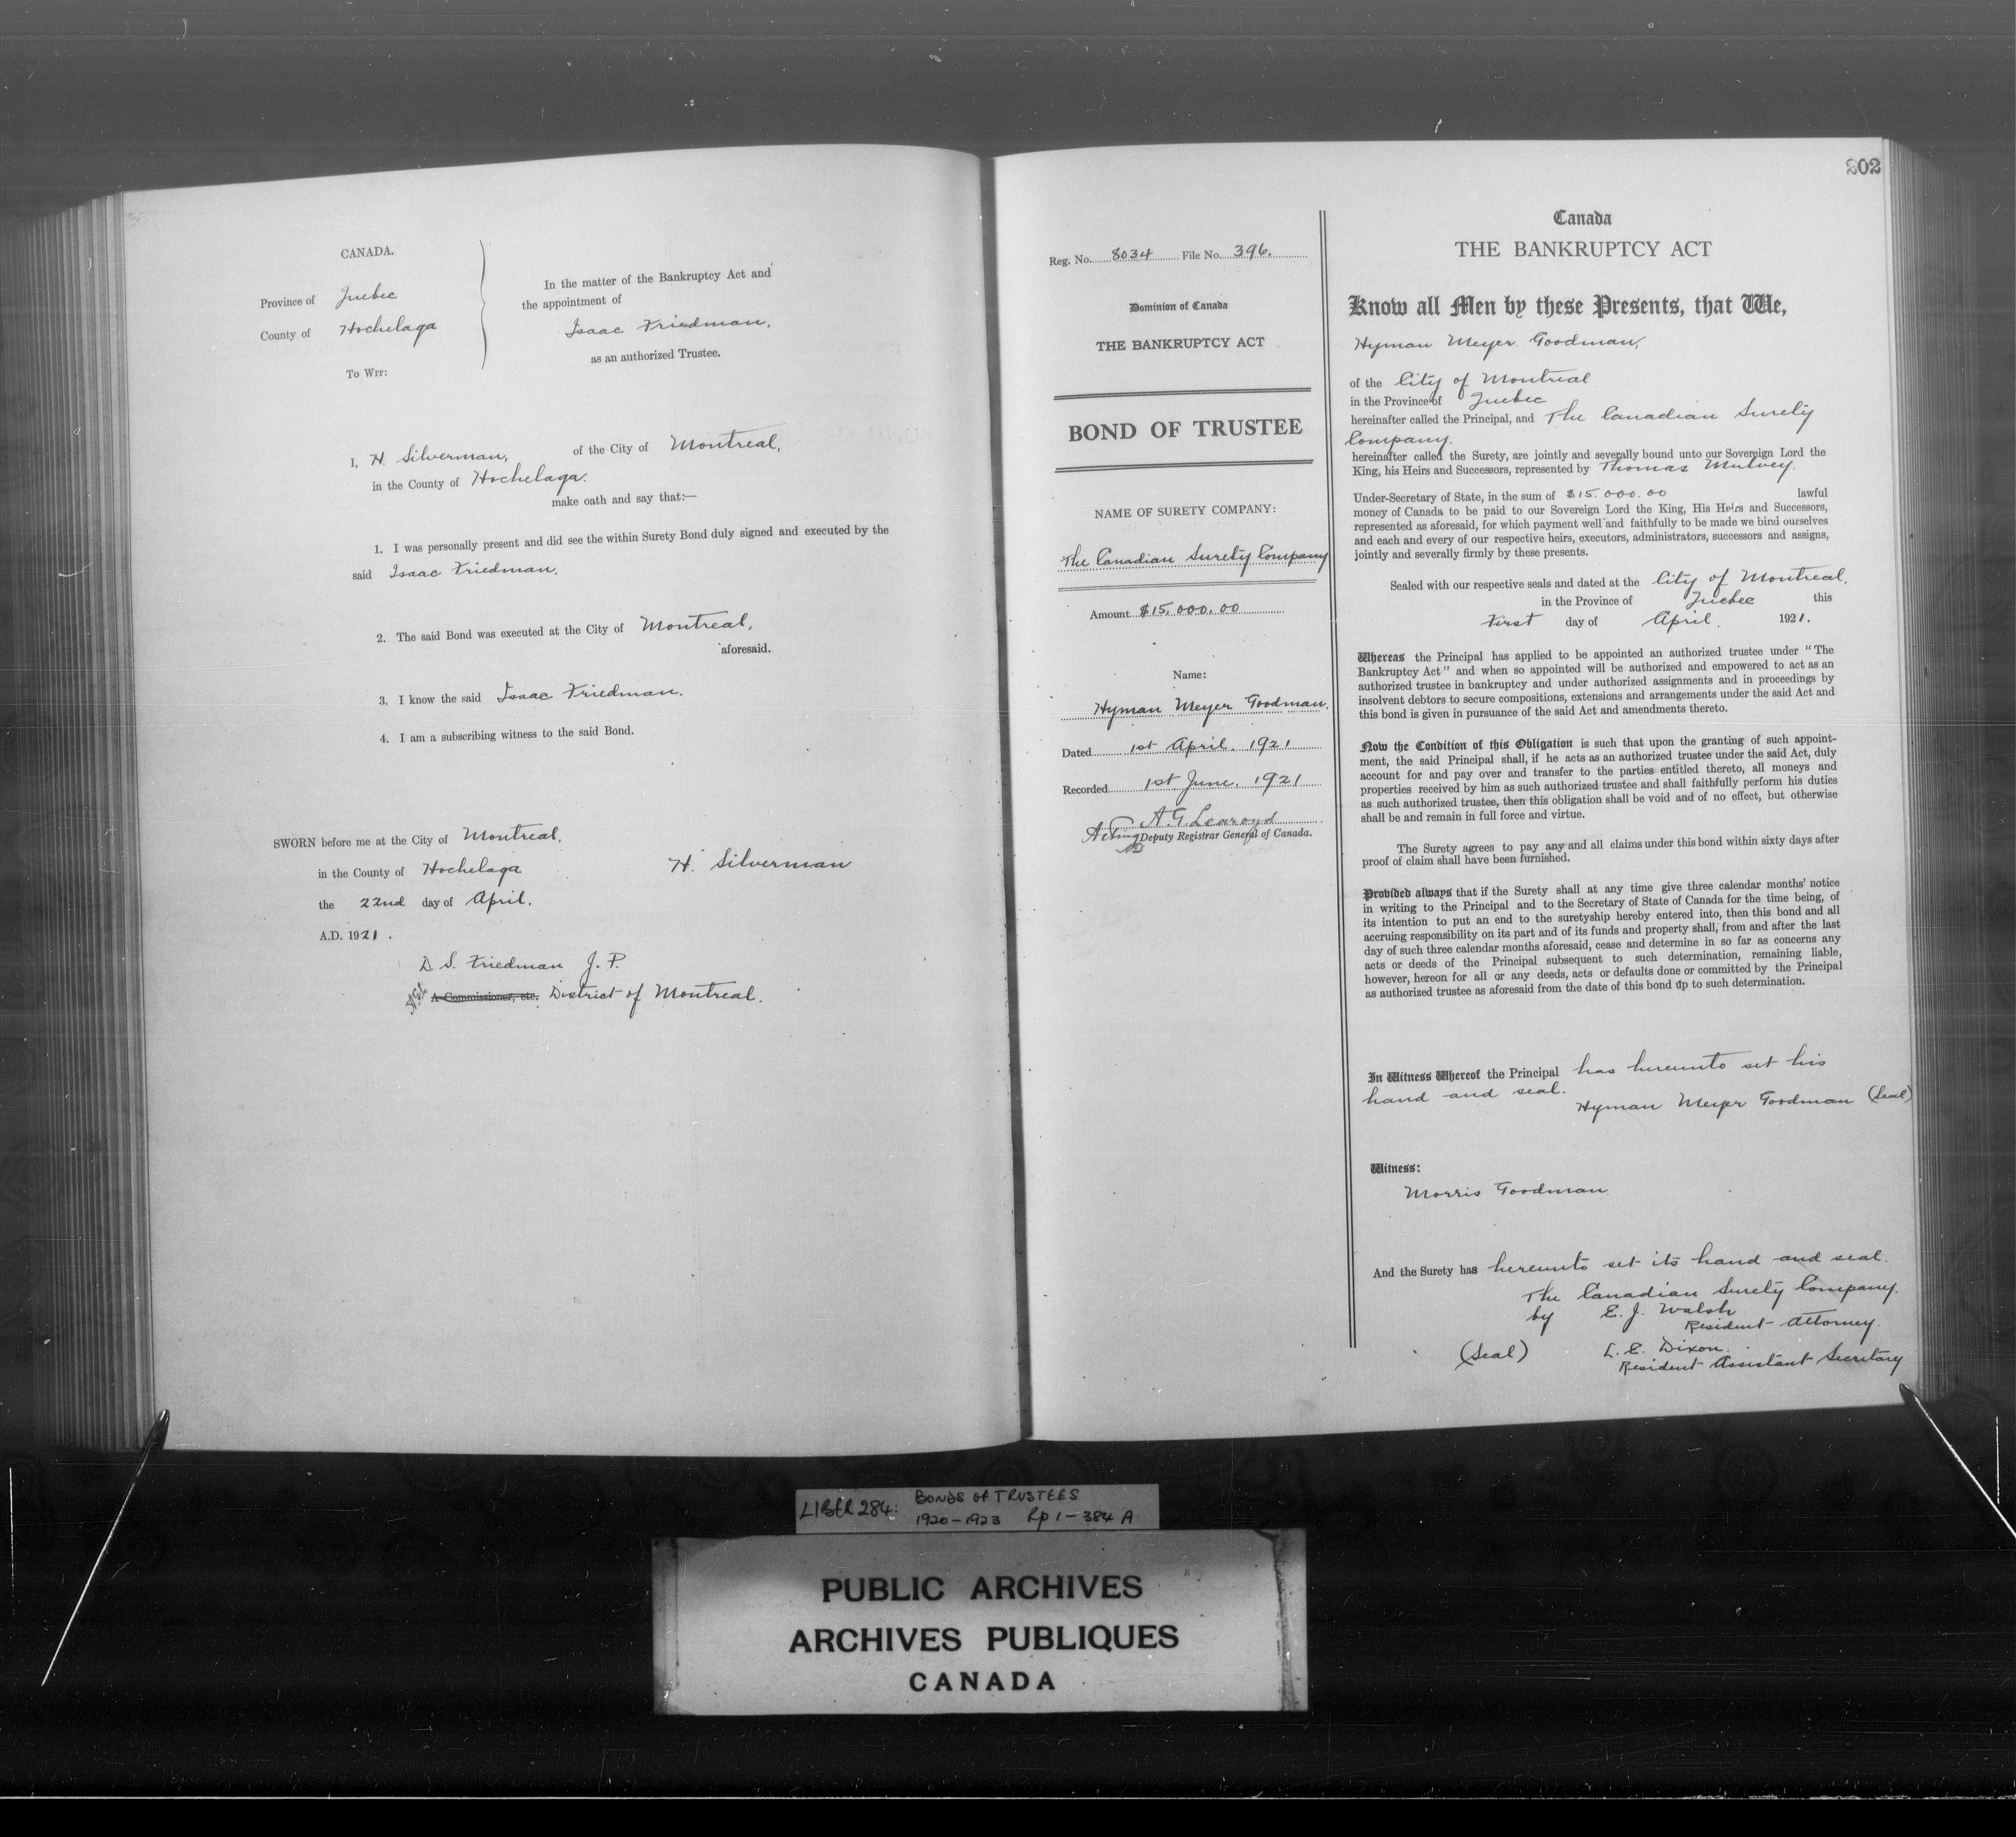 CANADA.
Province of Quebec
County of Hochelaga
To Wit:
In the matter of the Bankruptcy Act and
the appointment of
Isaac Friedman,
as an authorized Trustee.
I, H. Silverman, of the City of Montreal,
in the County of Hochelaga.
make oath and say that:—
1. I was personally present and did see the within Surety Bond duly signed and executed by the
said Isaac Friedman.
2. The said Bond was executed at the City of Montreal,
aforesaid.
3. I know the said Isaac Friedman.
4. I am a subscribing witness to the said Bond.
SWORN before me at the City of Montreal,
in the County of Hochelaga
the 22nd day of April.
A.D. 1921.
H. Silverman
D. S. Friedman J. P.
A Commissioner, etc. District of Montreal.
202
Reg. No. 8034 File No. 396.
Dominion of Canada
THE BANKRUPTCY ACT
BOND OF TRUSTEE
NAME OF SURETY COMPANY:
The Canadian Surety Company
Amount $15,000.00
Name:
Hyman Meyer Goodman.
Dated 1st April. 1921
Recorded 1st June. 1921
A. G. Learoyd
Acting Deputy Registrar General of Canada.
Canada
THE BANKRUPTCY ACT
Know all Men by these Presents, that We,
Hyman Meyer Goodman,
of the City of Montreal
in the Province of Quebec
hereinafter called the Principal, and The Canadian Surety
Company.
hereinafter called the Surety, are jointly and severally bound unto our Sovereign Lord the
King, his Heirs and Successors, represented by Thomas Mulvey.
Under-Secretary of State, in the sum of $15.000.00 lawful
money of Canada to be paid to our Sovereign Lord the King, His Heirs and Successors,
represented as aforesaid, for which payment well and faithfully to be made we bind ourselves
and each and every of our respective heirs, executors, administrators, successors and assigns,
jointly and severally firmly by these presents.
Sealed with our respective seals and dated at the City of Montreal.
in the Province of Quebec this
First day of April. 1921.
Whereas the Principal has applied to be appointed an authorized trustee under "The
Bankruptcy Act" and when so appointed will be authorized and empowered to act as an
authorized trustee in bankruptcy and under authorized assignments and in proceedings by
insolvent debtors to secure compositions, extensions and arrangements under the said Act and
this bond is given in pursuance of the said Act and amendments thereto.
Now the Condition of this Obligation is such that upon the granting of such appoint-
ment, the said Principal shall, if he acts as an authorized trustee under the said Act, duly
account for and pay over and transfer to the parties entitled thereto, all moneys and
properties received by him as such authorized trustee and shall faithfully perform his duties
as such authorized trustee, then this obligation shall be void and of no effect, but otherwise
shall be and remain in full force and virtue.
The Surety agrees to pay any and all claims under this bond within sixty days after
proof of claim shall have been furnished.
Provided always that if the Surety shall at any time give three calendar months' notice
in writing to the Principal and to the Secretary of State of Canada for the time being, of
its intention to put an end to the suretyship hereby entered into, then this bond and all
accruing responsibility on its part and of its funds and property shall, from and after the last
day of such three calendar months aforesaid, cease and determine in so far as concerns any
acts or deeds of the Principal subsequent to such determination, remaining liable,
however, hereon for all or any deeds, acts or defaults done or committed by the Principal
as authorized trustee as aforesaid from the date of this bond up to such determination.
In Witness Whereof the Principal has hereunto set his
hand and seal.
Hyman Meyer Goodman (Seal)
Witness:
Morris Goodman
And the Surety has hereunto set its hand and seal.
The Canadian Surety Company.
by E. J. Walsh
Resident Attorney.
(Seal) L. E. Dixon.
Resident Assistant Secretary
LIBER 284: BONDS OF TRUSTEES
1920-1923 Rp 1-384 A
PUBLIC ARCHIVES
ARCHIVES PUBLIQUES
CANADA